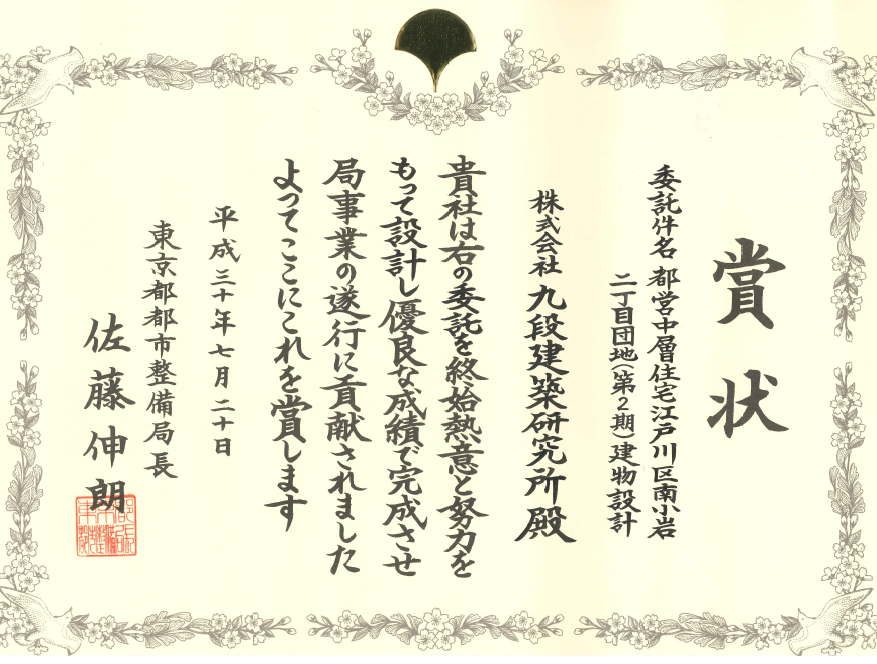 賞状
委託件名 都営中層住宅江戸川区南小岩
二丁目団地(第2期)建物設計
株式会社 九段建築研究所 殿
貴社は右の委託を終始熱意と努力を
もって設計し優良な成績で完成させ
局事業の遂行に貢献されました
よってここにこれを賞します
平成三十年七月二十日
東京都都市整備局長
佐藤伸朗